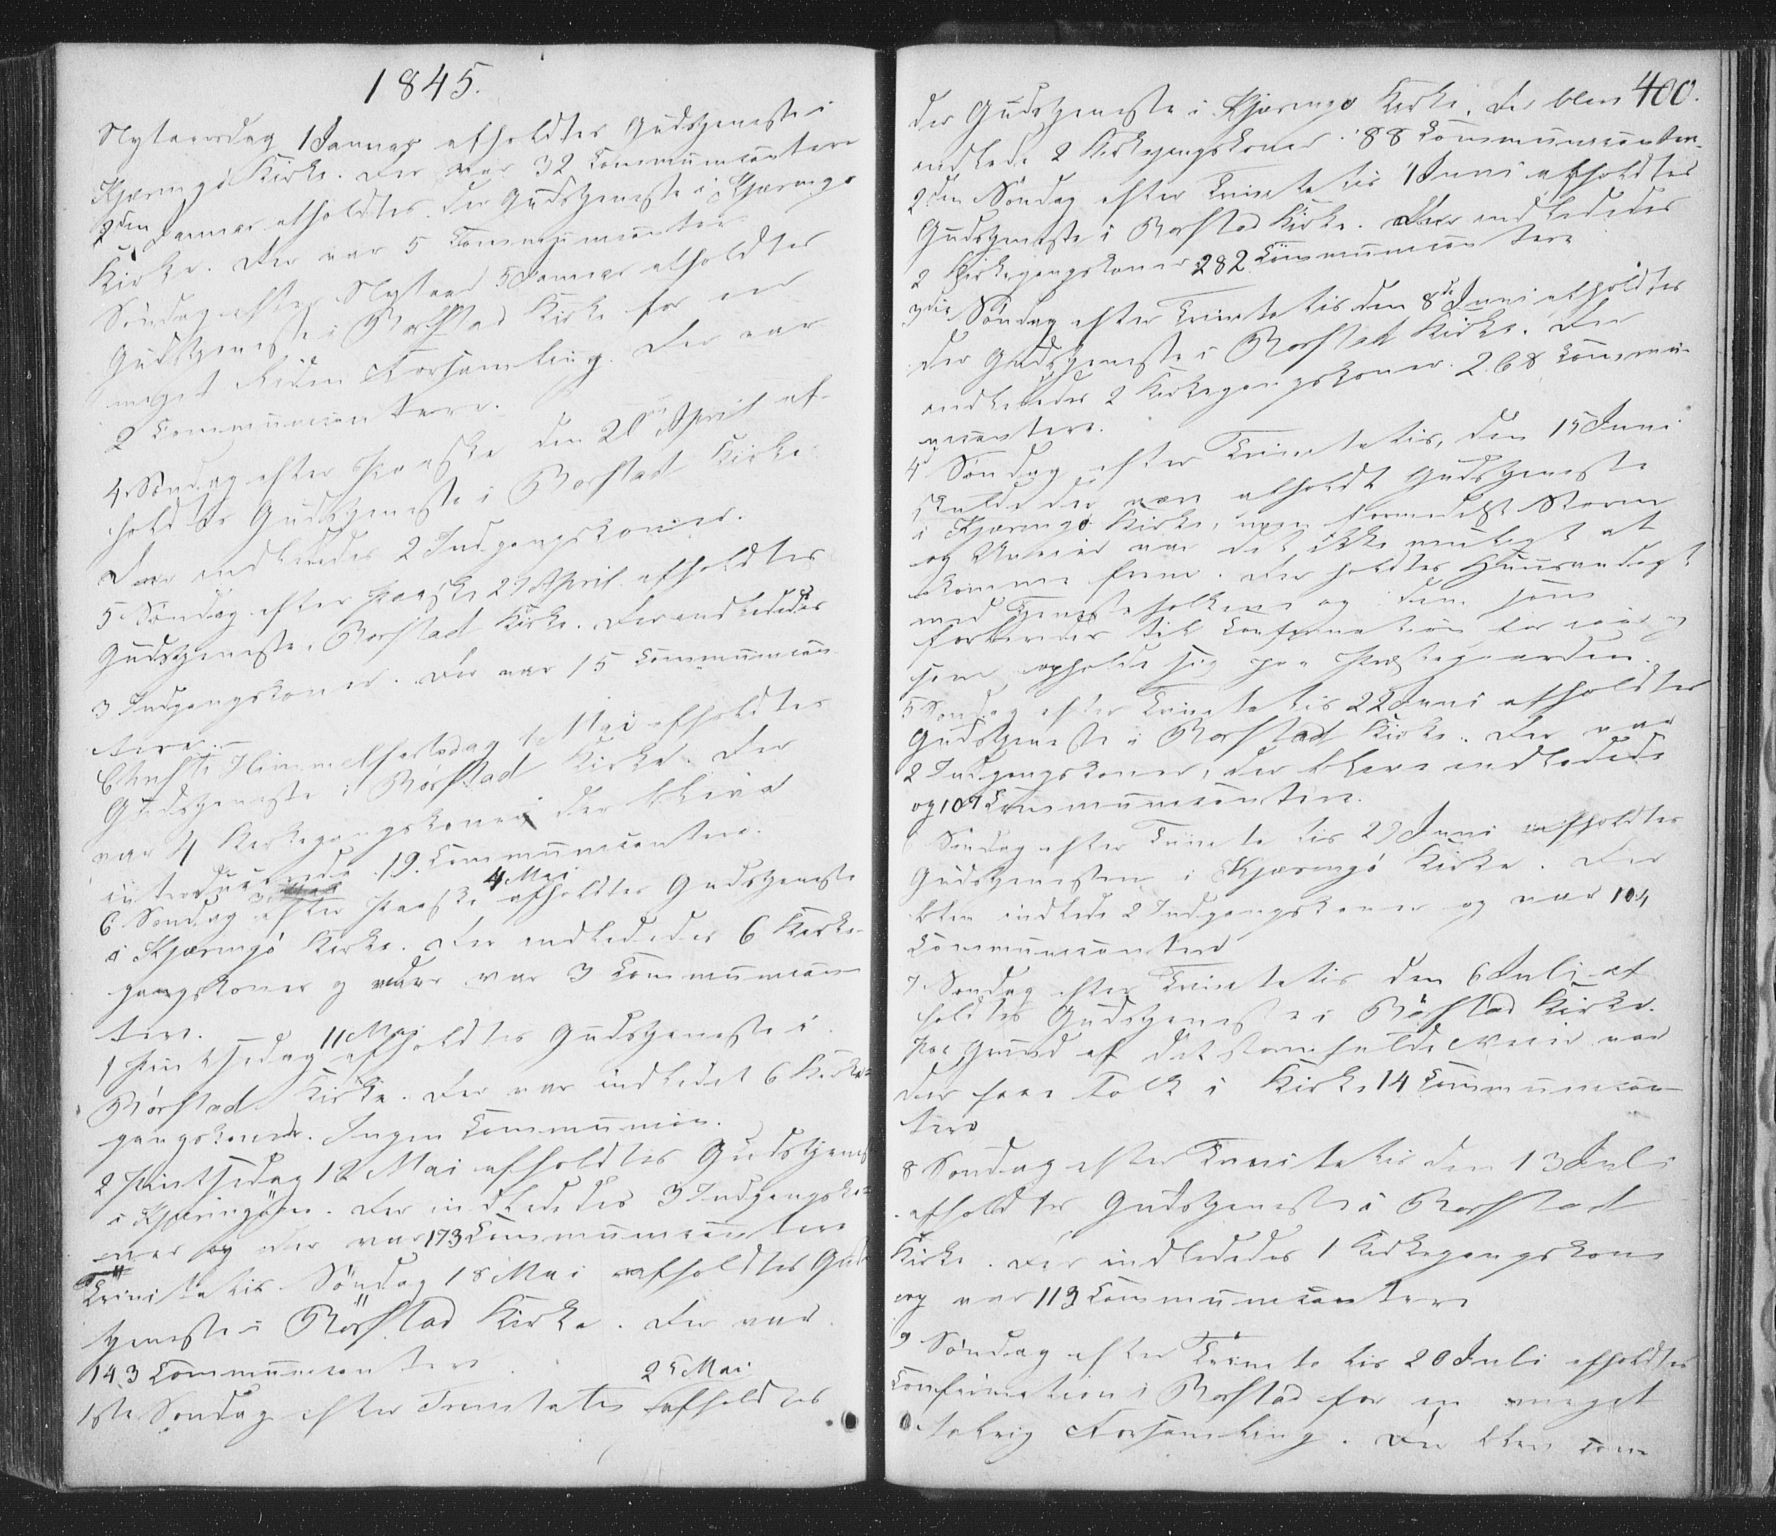 1845.
Nytaarsdag 1 Januar afholdtes Gudstjeneste i
Kjæringø Kirke. Der var 32 Communicantere
2den Januar afholdtes der Gudstjeneste i Kjæringø
Kirke. Der var 5 Communicantere
Søndag efter Nytaar 5 Januar afholdtes
Gudstjeneste i Rørstad Kirke for en
meget liden Forsamling. Der var
2 Communicantere.
4 Søndag efter Paaske den 20 April af-
holdtes Gudstjeneste i Rørstad Kirke
Der indlededes 2 Indgangskoner.
5 Søndag efter Paaske 27 April afholdtes
Gudstjeneste i Rørstad Kirke. Der indlededes
3 Indgangskoner. Der var 15 Communican-
tere.
Christi Himmelfartsdag 1 Mai afholdtes
Gudstjeneste i Rørstad Kirke. Der
var 4 Kirkegangskoner der bleve
introducerede 19 Communicantere.
6 Søndag efter Paaske 4 Mai afholdtes Gudstjeneste
i Kjæringø Kirke. Der indlededes 6 Kirke-
gangskoner og der var 3 Communican-
tere.
1 Pintsedag 11 Mai afholdtes Gudstjeneste i
Rørstad Kirke. Der var indledet 6 Kirke-
gangskoner. Ingen Communion.
2 Pintsedag 12 Mai afholdtes Gudstjeneste
i Kjæringøen. Der indlededes 3 Indgangsko-
ner og der var 173 Communicantere
Trinitatis Søndag 18 Mai afholdtes Guds-
tjeneste i Rørstad Kirke. Der var
143 Communicantere
1ste Søndag efter Trinitatis 25 Mai afholdtes
400.
der Gudstjeneste i Kjæringø Kirke. Der blev
indlede 2 Kirkegangskoner. 88 Communicanter.
2den Søndag efter Trinitatis 1 Juni afholdtes
Gudstjeneste i Rørstad Kirke. Der indlededes
2 Kirkegangskoner 282 Communicantere
3die Søndag efter Trinitatis den 8de Juni afholdtes
der Gudstjeneste i Rørstad Kirke. Der
indlededes 2 Kirkegangskoner. 268 Commu-
nicantere.
4 Søndag efter Trinitatis, den 15 Juni
skulde der være afholdt Gudstjeneste
i Kjæringø Kirke, men formedelst Storm
og Uveir var det ikke muligt at
komme frem. Der holdtes Huusandagt
med Tjenestefolkene og dem som
forberedes til Confirmation for iaar og
som opholde sig paa Præstegaarden.
5 Søndag efter Trinitatis 22 Juni afholdtes
Gudstjeneste i Rørstad Kirke. Der var
2 Indgangskoner, der bleve indledede
og 107 Communicantere.
Søndag efter Trinitatis 29 Juni afholdtes
Gudstjenesten i Kjæringø Kirke. Der
blev indlede 2 Indgangskoner og var 104
Communicantere
7 Søndag efter Trinitatis den 6 Juli af-
holdtes Gudstjeneste i Rørstad Kirke.
Paa Grund af det stormfulde Veir var
der faae Folk i Kirke 14 Communican-
tere
8 Søndag efter Trinitatis den 13 Juli
afholdtes Gudstjeneste i Rørstad
Kirke. Der indlededes 1 Kirkegangskone
og var 113 Communicantere
9 Søndag efter Trinitatis 20 Juli afholdtes
Confirmation i Rørstad for en meget
talrig Forsamling. Der blev con-